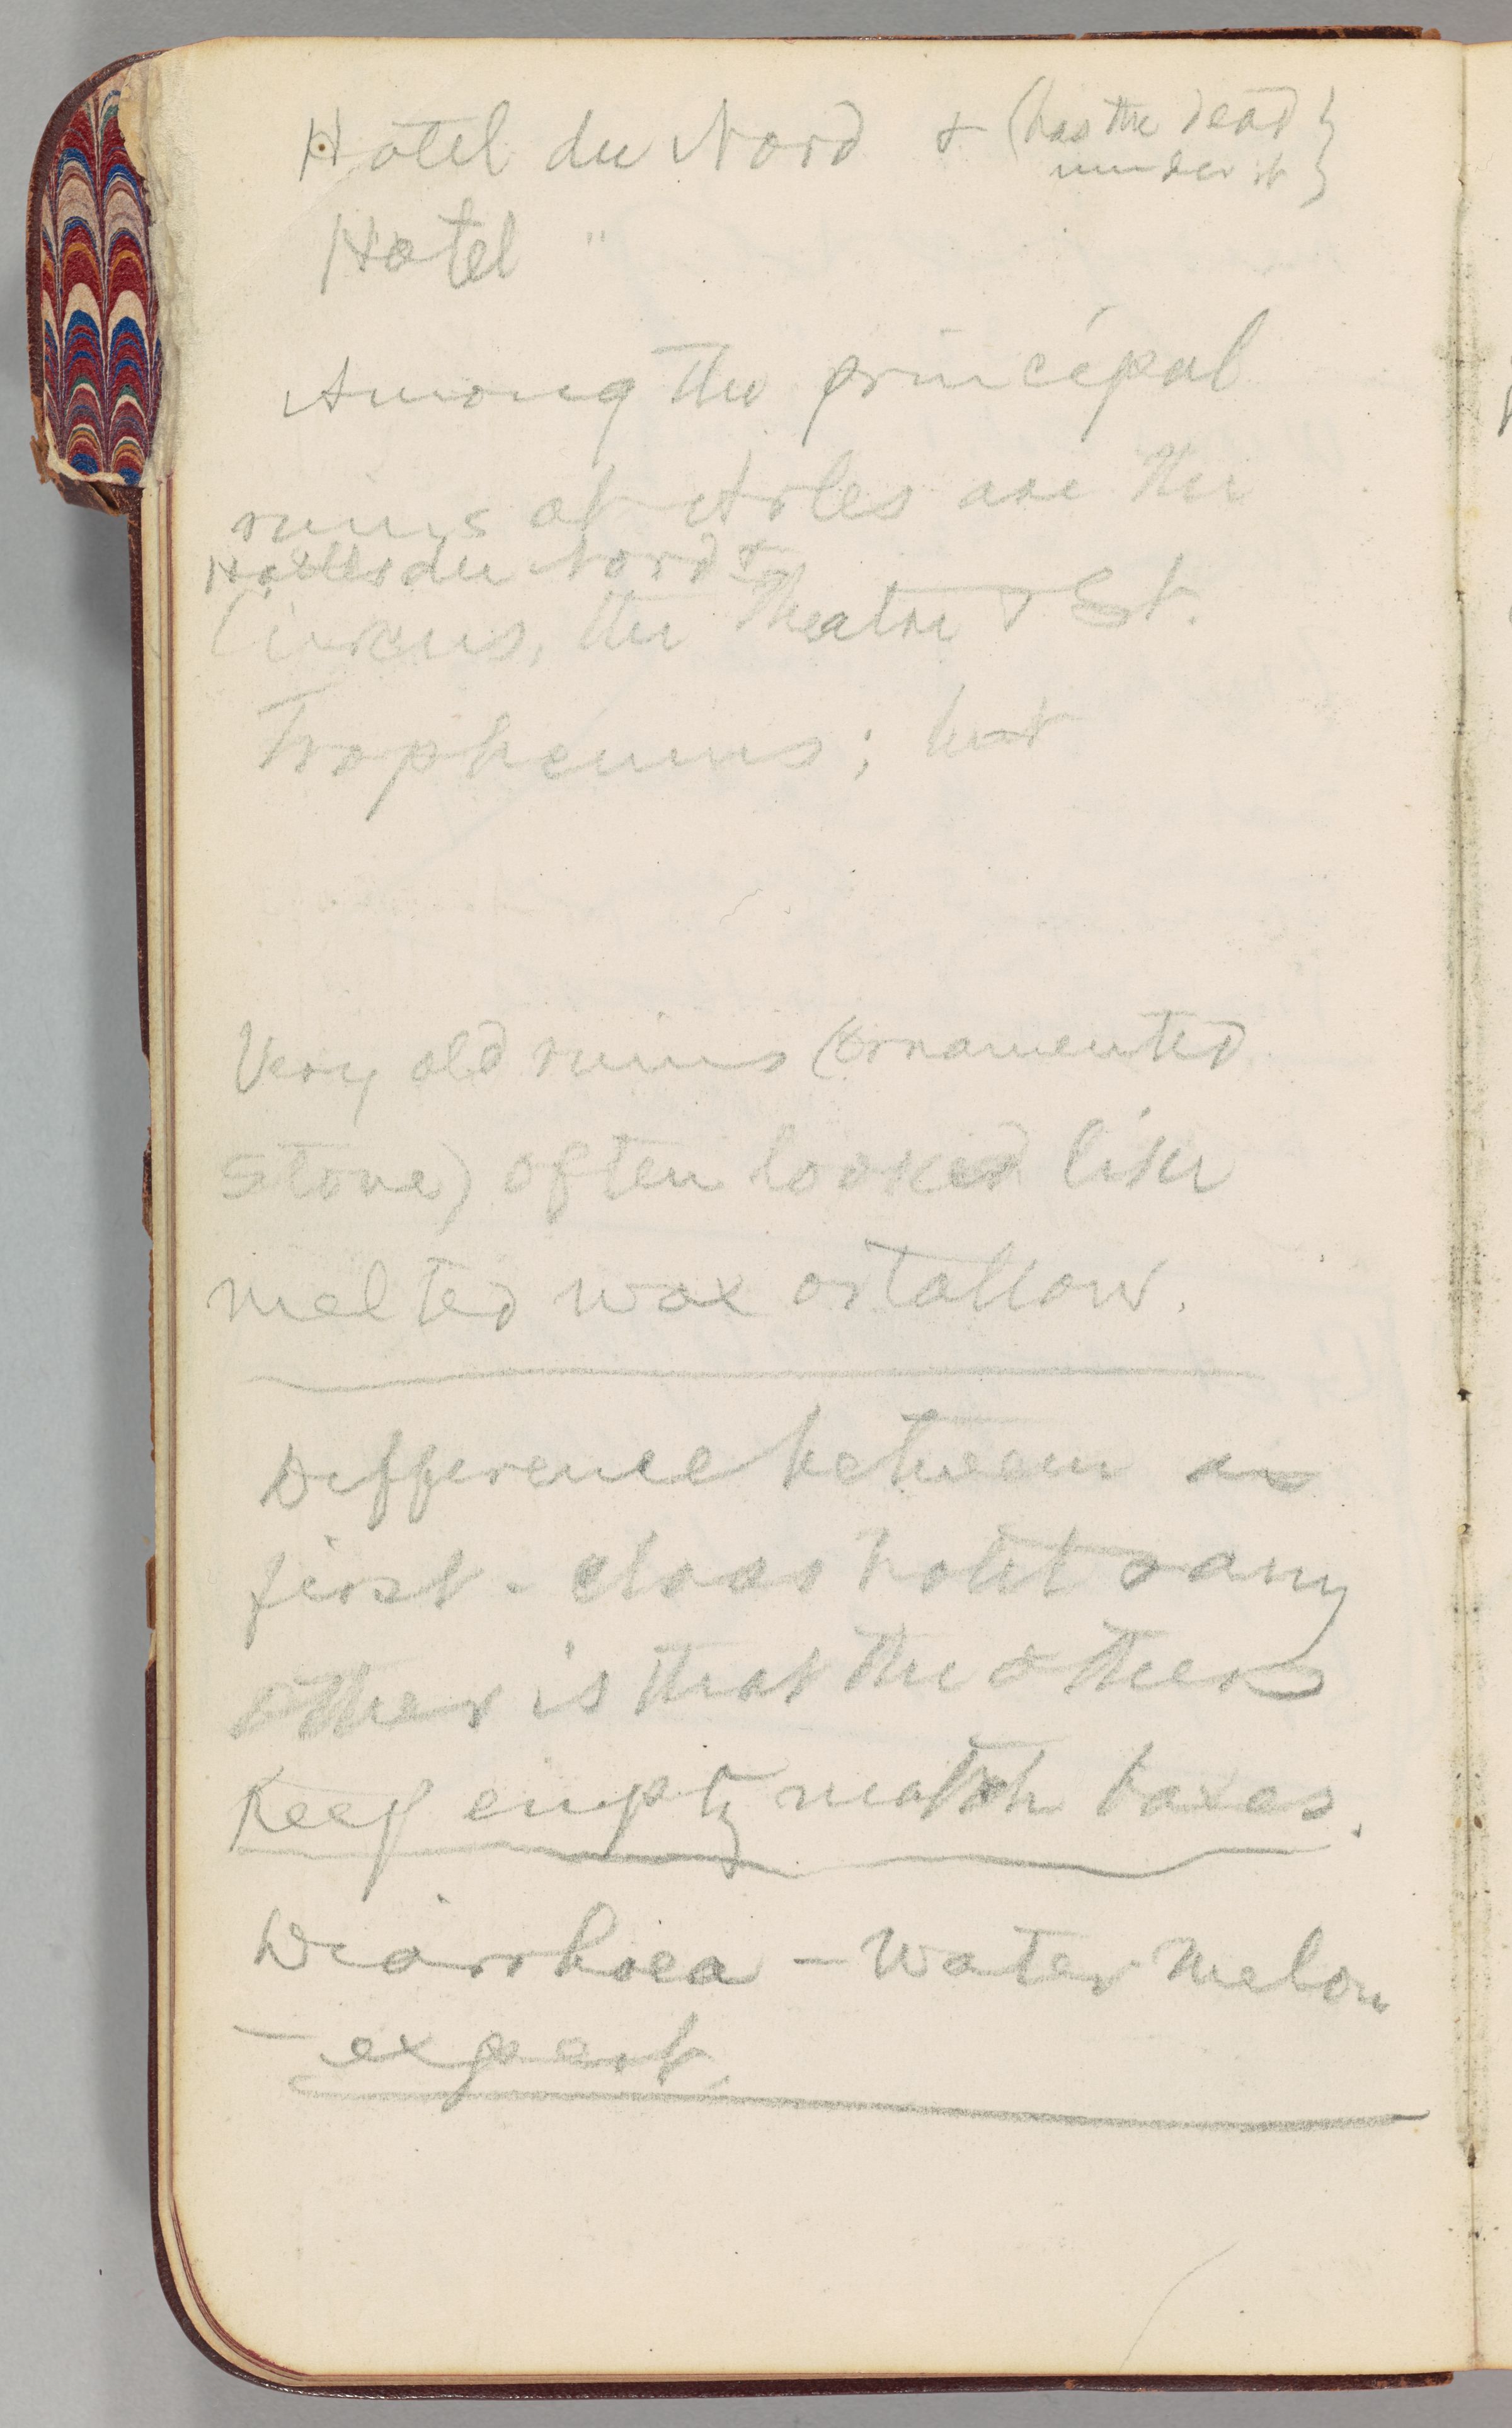 Hotel du Nord & (has the dead
under it)
Hotel "
Among the principal
ruins at Arles are the
Hotels du Nord &
Circus, the Theatre & St.
Trophemus; but
Very old ruins (ornamented
stone) often looked like
melted wax or tallow.
Difference between a
first-class hotel & any
other is that the others
keep empty match boxes.
Diarrhoea – Water Melon
– expert.